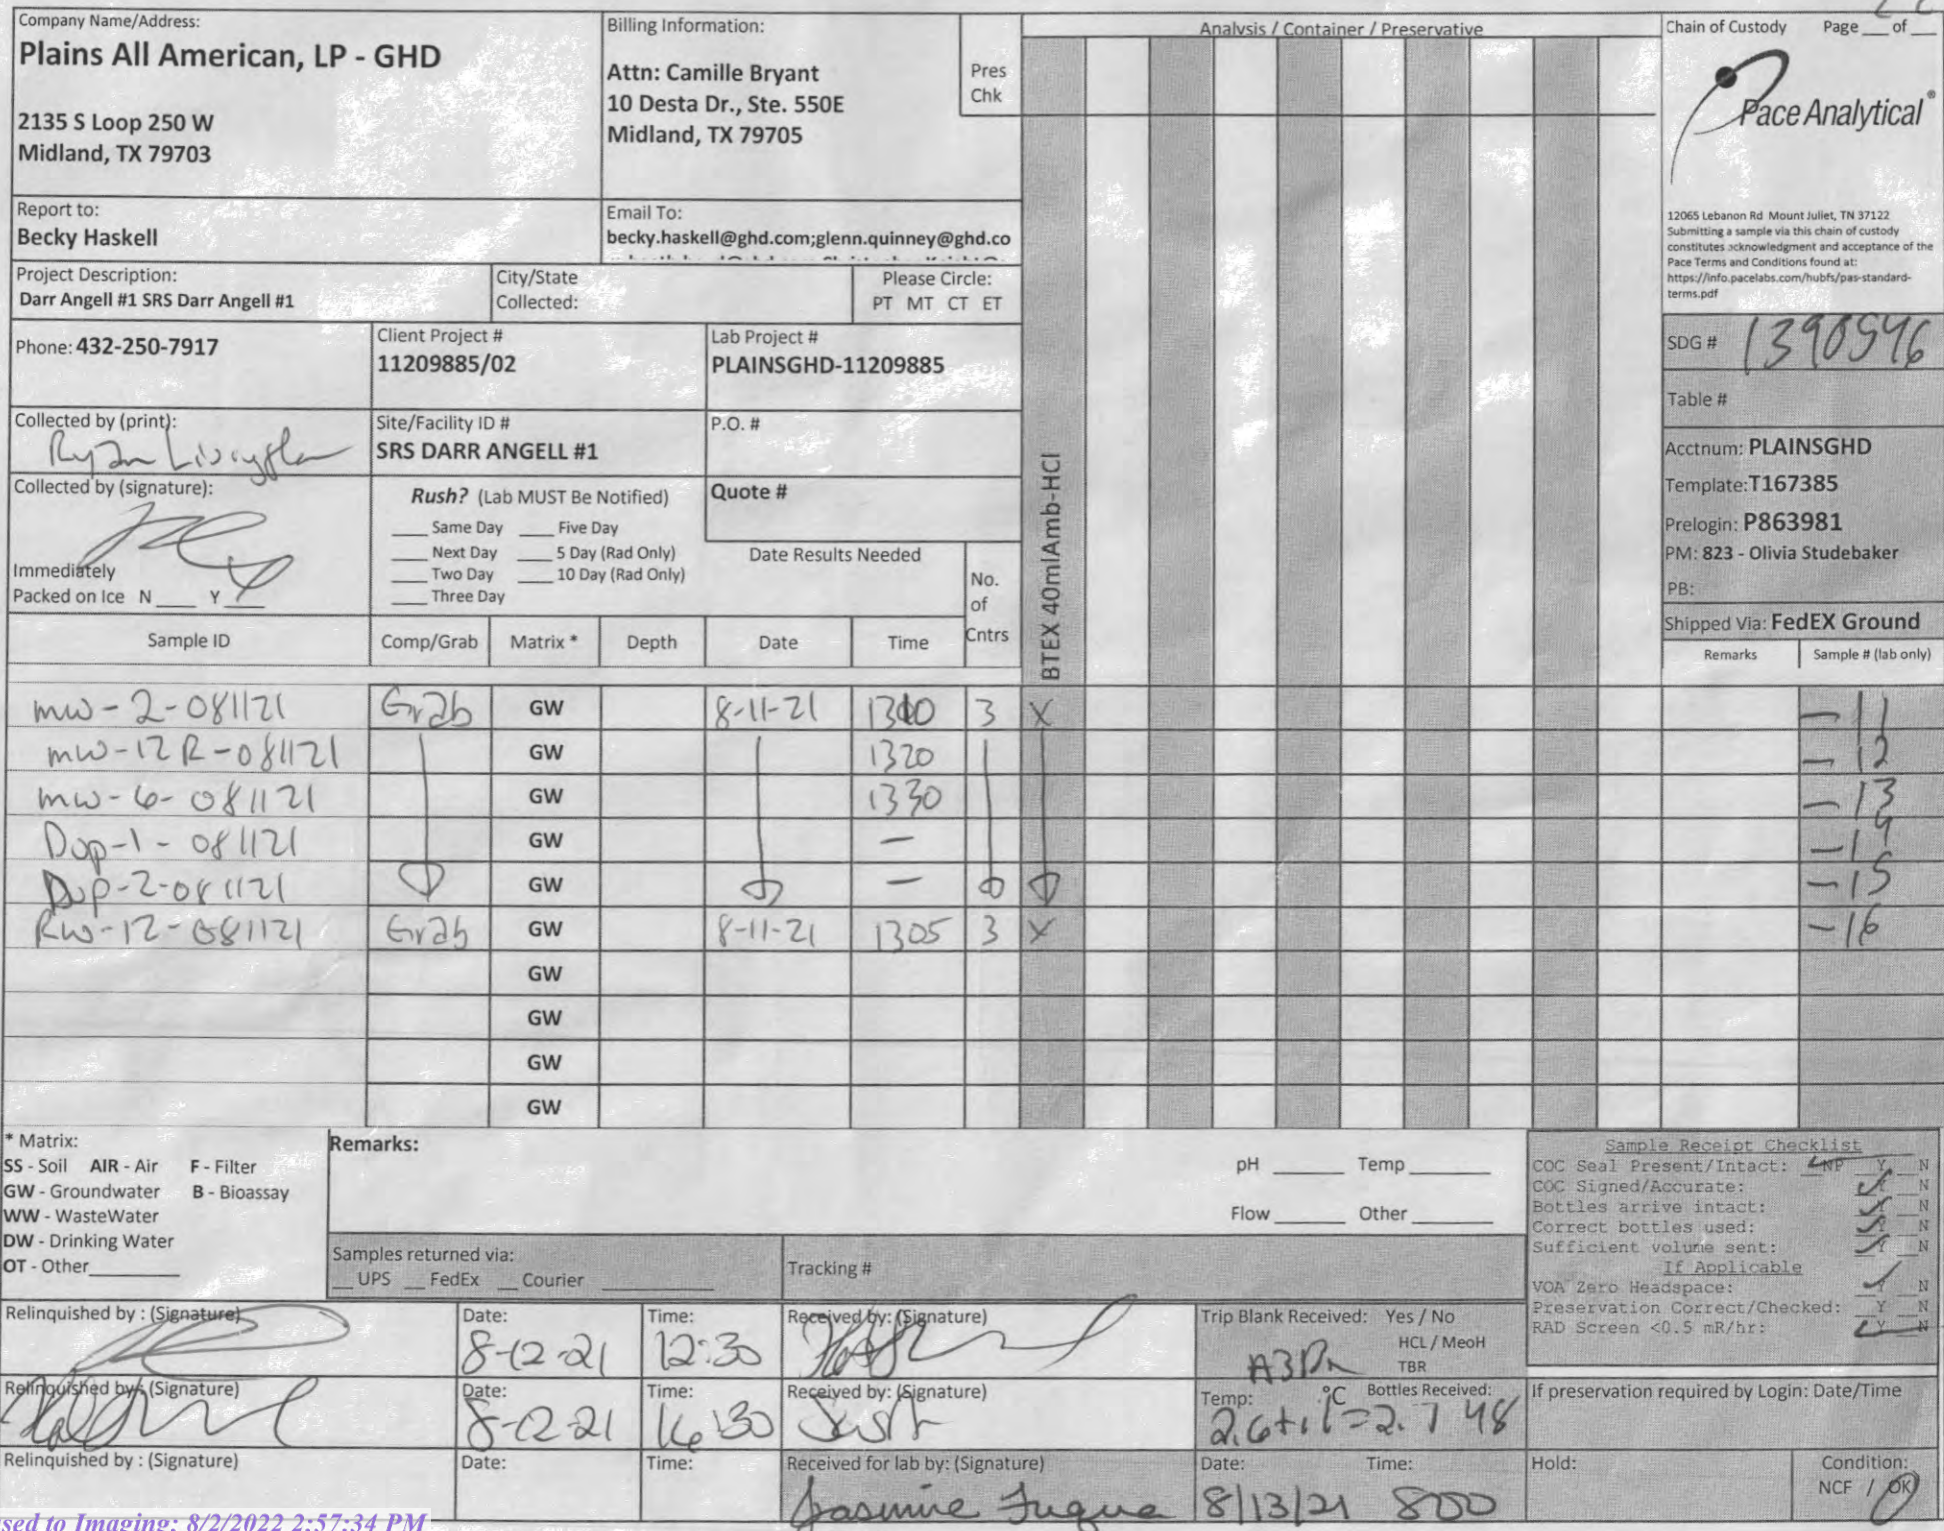 Company Name/Address:
Plains All American, LP - GHD
2135 S Loop 250 W
Midland, TX 79703
Billing Information:
Attn: Camille Bryant
10 Desta Dr., Ste. 550E
Midland, TX 79705
Pres
Chk
Analysis / Container / Preservative
Chain of Custody Page ___ of ___
Pace Analytical®
12065 Lebanon Rd Mount Juliet, TN 37122
Submitting a sample via this chain of custody
constitutes acknowledgment and acceptance of the
Pace Terms and Conditions found at:
https://info.pacelabs.com/hubfs/pas-standard-
terms.pdf
Report to:
Becky Haskell
Email To:
becky.haskell@ghd.com;glenn.quinney@ghd.co
Project Description:
Darr Angell #1 SRS Darr Angell #1
City/State
Collected:
Please Circle:
PT MT CT ET
Phone: 432-250-7917
Client Project #
11209885/02
Lab Project #
PLAINSGHD-11209885
SDG # 1390546
Table #
Collected by (print):
Ryan
Site/Facility ID #
SRS DARR ANGELL #1
P.O. #
Acctnum: PLAINSGHD
Template:T167385
Prelogin: P863981
PM: 823 - Olivia Studebaker
PB:
Shipped Via: FedEX Ground
Collected by (signature):
Immediately
Packed on Ice N ___ Y ___
Rush? (Lab MUST Be Notified)
___ Same Day ___ Five Day
___ Next Day ___ 5 Day (Rad Only)
___ Two Day ___ 10 Day (Rad Only)
___ Three Day
Quote #
Date Results Needed
No.
of
Cntrs
BTEX 40mlAmb-HCl
Sample ID Comp/Grab Matrix * Depth Date Time Remarks Sample # (lab only)
mw-2-081121 Grab GW 8-11-21 1300 3 X -11
mw-12R-081121 GW 1320 -12
mw-6-081121 GW 1330 -13
Dup-1-081121 GW — -14
Dup-2-081121 GW — -15
Rw-12-081121 Grab GW 8-11-21 1305 3 X -16
GW
GW
GW
GW
* Matrix:
SS - Soil AIR - Air F - Filter
GW - Groundwater B - Bioassay
WW - WasteWater
DW - Drinking Water
OT - Other
Remarks:
pH ___ Temp ___
Flow ___ Other ___
Samples returned via:
__ UPS __ FedEx __ Courier
Tracking #
Sample Receipt Checklist
COC Seal Present/Intact: NP Y N
COC Signed/Accurate: Y N
Bottles arrive intact: Y N
Correct bottles used: Y N
Sufficient volume sent: Y N
If Applicable
VOA Zero Headspace: Y N
Preservation Correct/Checked: Y N
RAD Screen <0.5 mR/hr: Y N
Relinquished by : (Signature)
Date:
8-12-21
Time:
12:30
Received by: (Signature)
Trip Blank Received: Yes / No
HCL / MeoH
TBR
Relinquished by : (Signature)
Date:
8-12-21
Time:
16:30
Received by: (Signature)
Temp: °C Bottles Received:
2.6+.1=2.7 48
If preservation required by Login: Date/Time
Relinquished by : (Signature)
Date:
Time:
Received for lab by: (Signature)
Jasmine Fuqua
Date: Time:
8/13/21 800
Hold:
Condition:
NCF / OK
sed to Imaging: 8/2/2022 2:57:34 PM